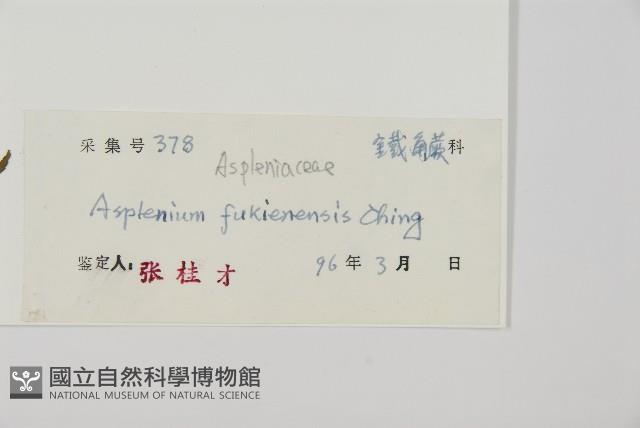 采集号 378 鐵角蕨科
Aspleniaceae
Asplenium fukienensis Ching
鉴定人: 张桂才 96年3月 日
國立自然科學博物館
NATIONAL MUSEUM OF NATURAL SCIENCE